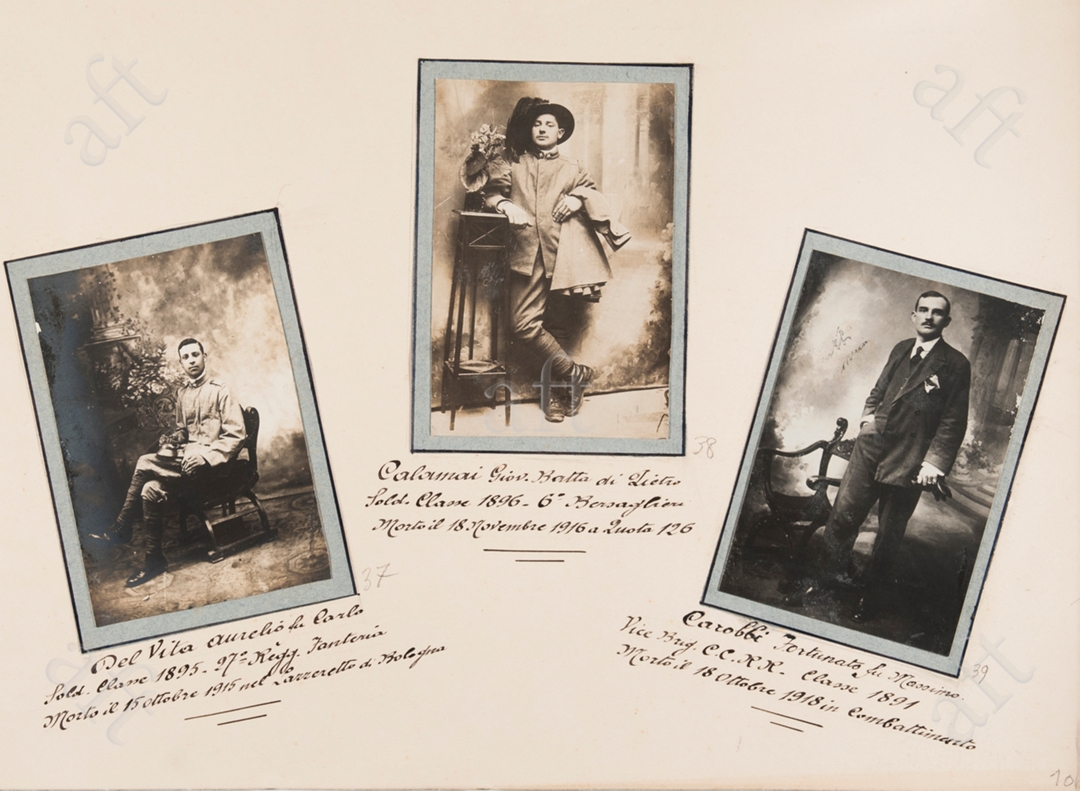 aft
aft
38
Calamai Giov. Batta di Pietro
Sold. Classe 1896 - 6° Bersaglieri
Morto il 18 Novembre 1916 a Quota 126
aft
37
Del Vita Aurelio fu Carlo
Sold. Classe 1895 - 27° Regg. Fanteria
Morto il 15 ottobre 1915 nel Lazzeretto di Bologna
39
Carobbi Fortunato fu Massimo
Vice Brig. C.C.R.R. - Classe 1891
Morto il 18 Ottobre 1918 in Combattimento
aft
aft
10